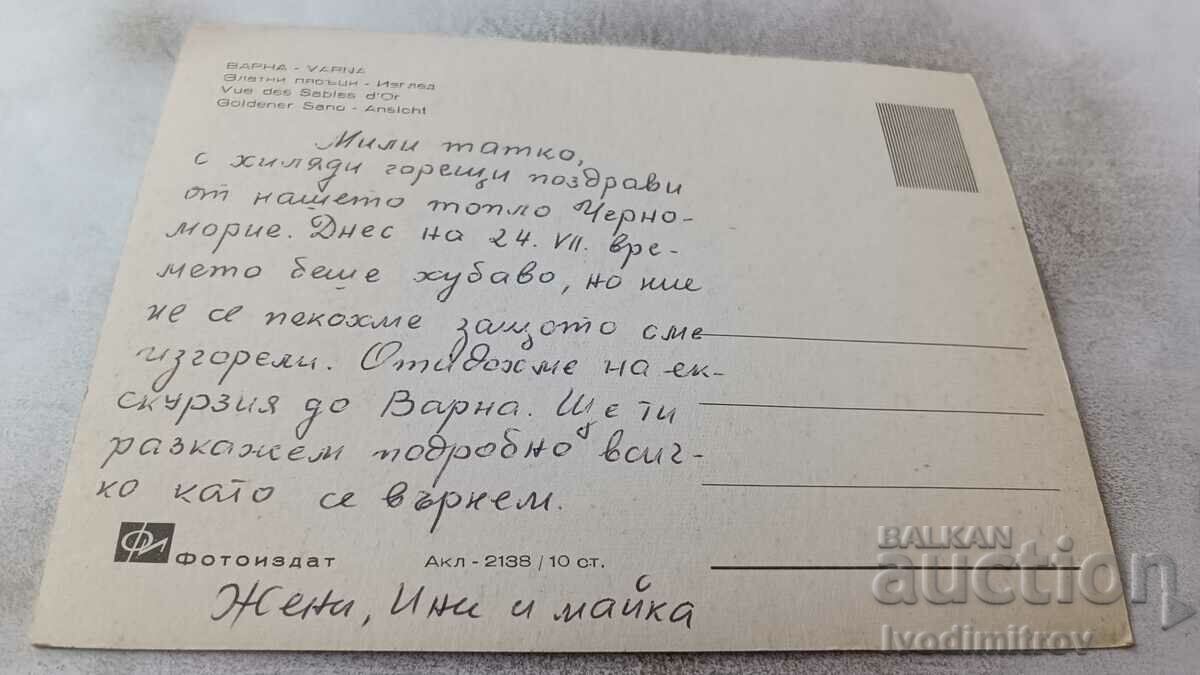 ВАРНА - VARNA
Златни пясъци - Изглед
Vue des Sables d'Or
Goldener Sand - Ansicht
Мили татко,
с хиляди горещи поздрави
от нашето топло Черно-
морие. Днес на 24. VII. вре-
мето беше хубаво, но ние
не се пекохме защото сме
изгорели. Отидохме на ек-
скурзия до Варна. Ще ти
разкажем подробно всич-
ко като се върнем.
ФИ Фотоиздат Акл - 2138 / 10 ст.
Жени, Ини и майка
BALKAN
auction
Ivodimitrov